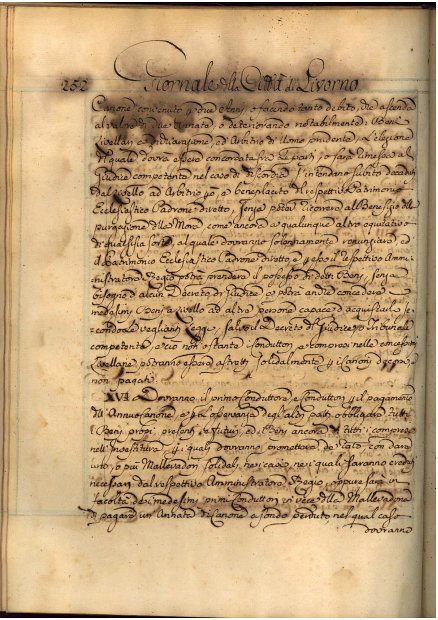 252 Giornale della Città di Livorno
Canone convenuto per due Anni, o facendo tanto debito, che ascenda
al valore di due annate, o deteriorando notabilmente i Beni
Livellari a dichiarazione, ed Arbitrio di Uomo prudente, l'elezione
di quale dovrà essere concordata fra le parti, o farsi rimessa al
Giudice competente nel caso di discordia s'intendano subito decaduti
dal Livello ad Arbitrio, o beneplacito di respettivi Patrimonio
Ecclesiastico Padrone diretto, senza poter ricorrere al Benefizio della
purgazione della Mora come ancora a qualunque altro equitativo
di qualsisia sorte, al quale dovranno solennemente renunziare, ed
il Patrimonio Ecclesiastico Padrone diretto, e per esso il respettivo Ammi-
nistratore Regio potrà prendere il possesso di detti Beni, senza
bisogno d'alcun Decreto di Giudice, e potrà anche concedere
medesimi Beni a Livello ad altre persone capaci d'acquistarli se-
condo le veglianti Leggi, salvo il Decreto di Giudice, o Tribunale
competente, e ciò non ostante i Conduttori, e compresi nelle concessioni
Livellarie potranno essere astretti solidalmente per i Canoni decorsi
non pagati.
XVI. Dovranno il primo Conduttore, e Conduttori per il pagamento
dell'Annuo Canone, e per l'osservanza degli altri patti obbligare tutti
i Beni propri presenti, e futuri, ed i Beni ancora di tutti i compresi
nell'Investitura, per i quali dovranno promettere de rato con dare
uno, o più Mallevadori solidali, nei casi, nei quali saranno creduti
necessari dal respettivo Amministratore Regio, oppure sarà in
facoltà dei medesimi primi Conduttori in vece della Mallevadoria
di pagare un Annata di Canone a fondo perduto, nel qual caso
dovranno